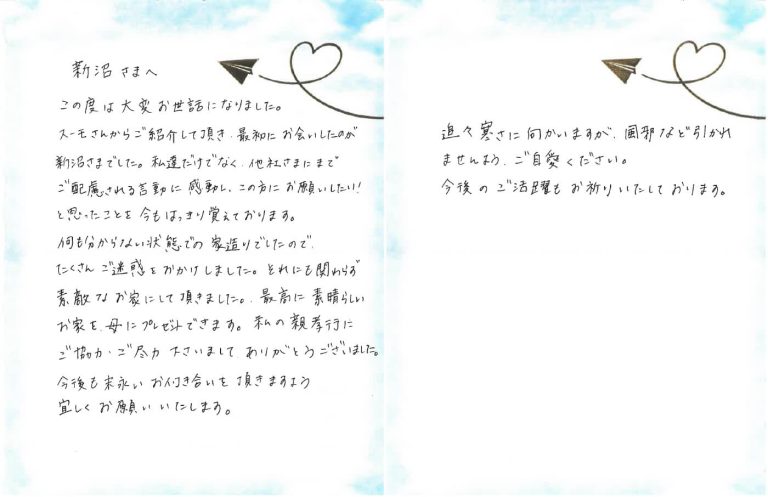 新沼さまへ
この度は大変お世話になりました。
スーモさんからご紹介して頂き、最初にお会いしたのが
新沼さまでした。私達だけでなく、他社さまにまで
ご配慮される言動に感動し、この方にお願いしたい!
と思ったことを今もはっきり覚えております。
何も分からない状態での家造りでしたので、
たくさんご迷惑をおかけしました。それにも関わらず
素敵なお家にして頂きました。最高に素晴らしい
お家を、母にプレゼントできます。私の親孝行に
ご協力・ご尽力下さいましてありがとうございました。
今後も末永いお付き合いを頂きますよう
宜しくお願いいたします。
進々寒さに向かいますが、風邪など引かれ
ませんよう、ご自愛ください。
今後のご活躍もお祈りいたしております。